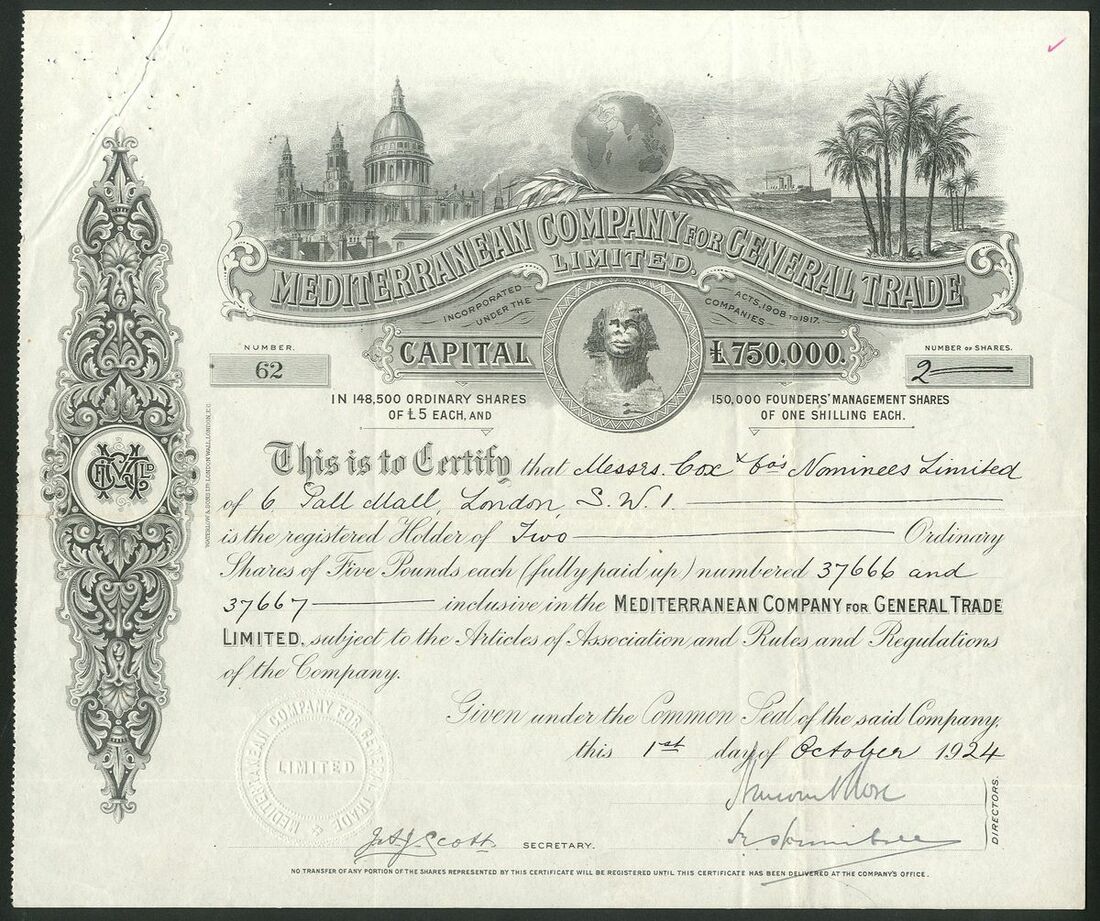 MEDITERRANEAN COMPANY FOR GENERAL TRADE
LIMITED.
INCORPORATED UNDER THE COMPANIES ACTS, 1908 TO 1917.
CAPITAL £750,000.
NUMBER.
62
NUMBER OF SHARES.
2
IN 148,500 ORDINARY SHARES
OF £5 EACH, AND
150,000 FOUNDERS' MANAGEMENT SHARES
OF ONE SHILLING EACH.
This is to Certify that Messrs. Cox & Co's Nominees Limited
of 6 Pall Mall, London, S.W.1.
is the registered Holder of Two Ordinary
Shares of Five Pounds each (fully paid up) numbered 37666 and
37667 inclusive in the MEDITERRANEAN COMPANY FOR GENERAL TRADE
LIMITED, subject to the Articles of Association and Rules and Regulations
of the Company.
Given under the Common Seal of the said Company,
this 1st day of October 1924
MEDITERRANEAN COMPANY FOR GENERAL TRADE
LIMITED
DIRECTORS.
Scott
SECRETARY.
NO TRANSFER OF ANY PORTION OF THE SHARES REPRESENTED BY THIS CERTIFICATE WILL BE REGISTERED UNTIL THIS CERTIFICATE HAS BEEN DELIVERED AT THE COMPANY'S OFFICE.
WATERLOW & SONS LTD LONDON WALL, LONDON, E.C.